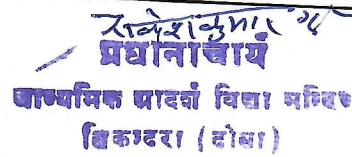 राकेश कुमार
प्रधानाचार्य
माध्यमिक आदर्श विद्या मन्दिर
सिकन्दरा (दौसा)